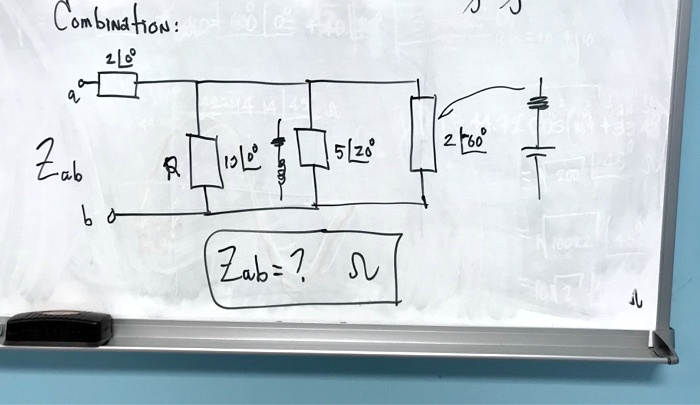 Combination:
2∠0°
a
Zab
R
10∠0°
5∠20°
2∠-60°
b
Zab = ? Ω